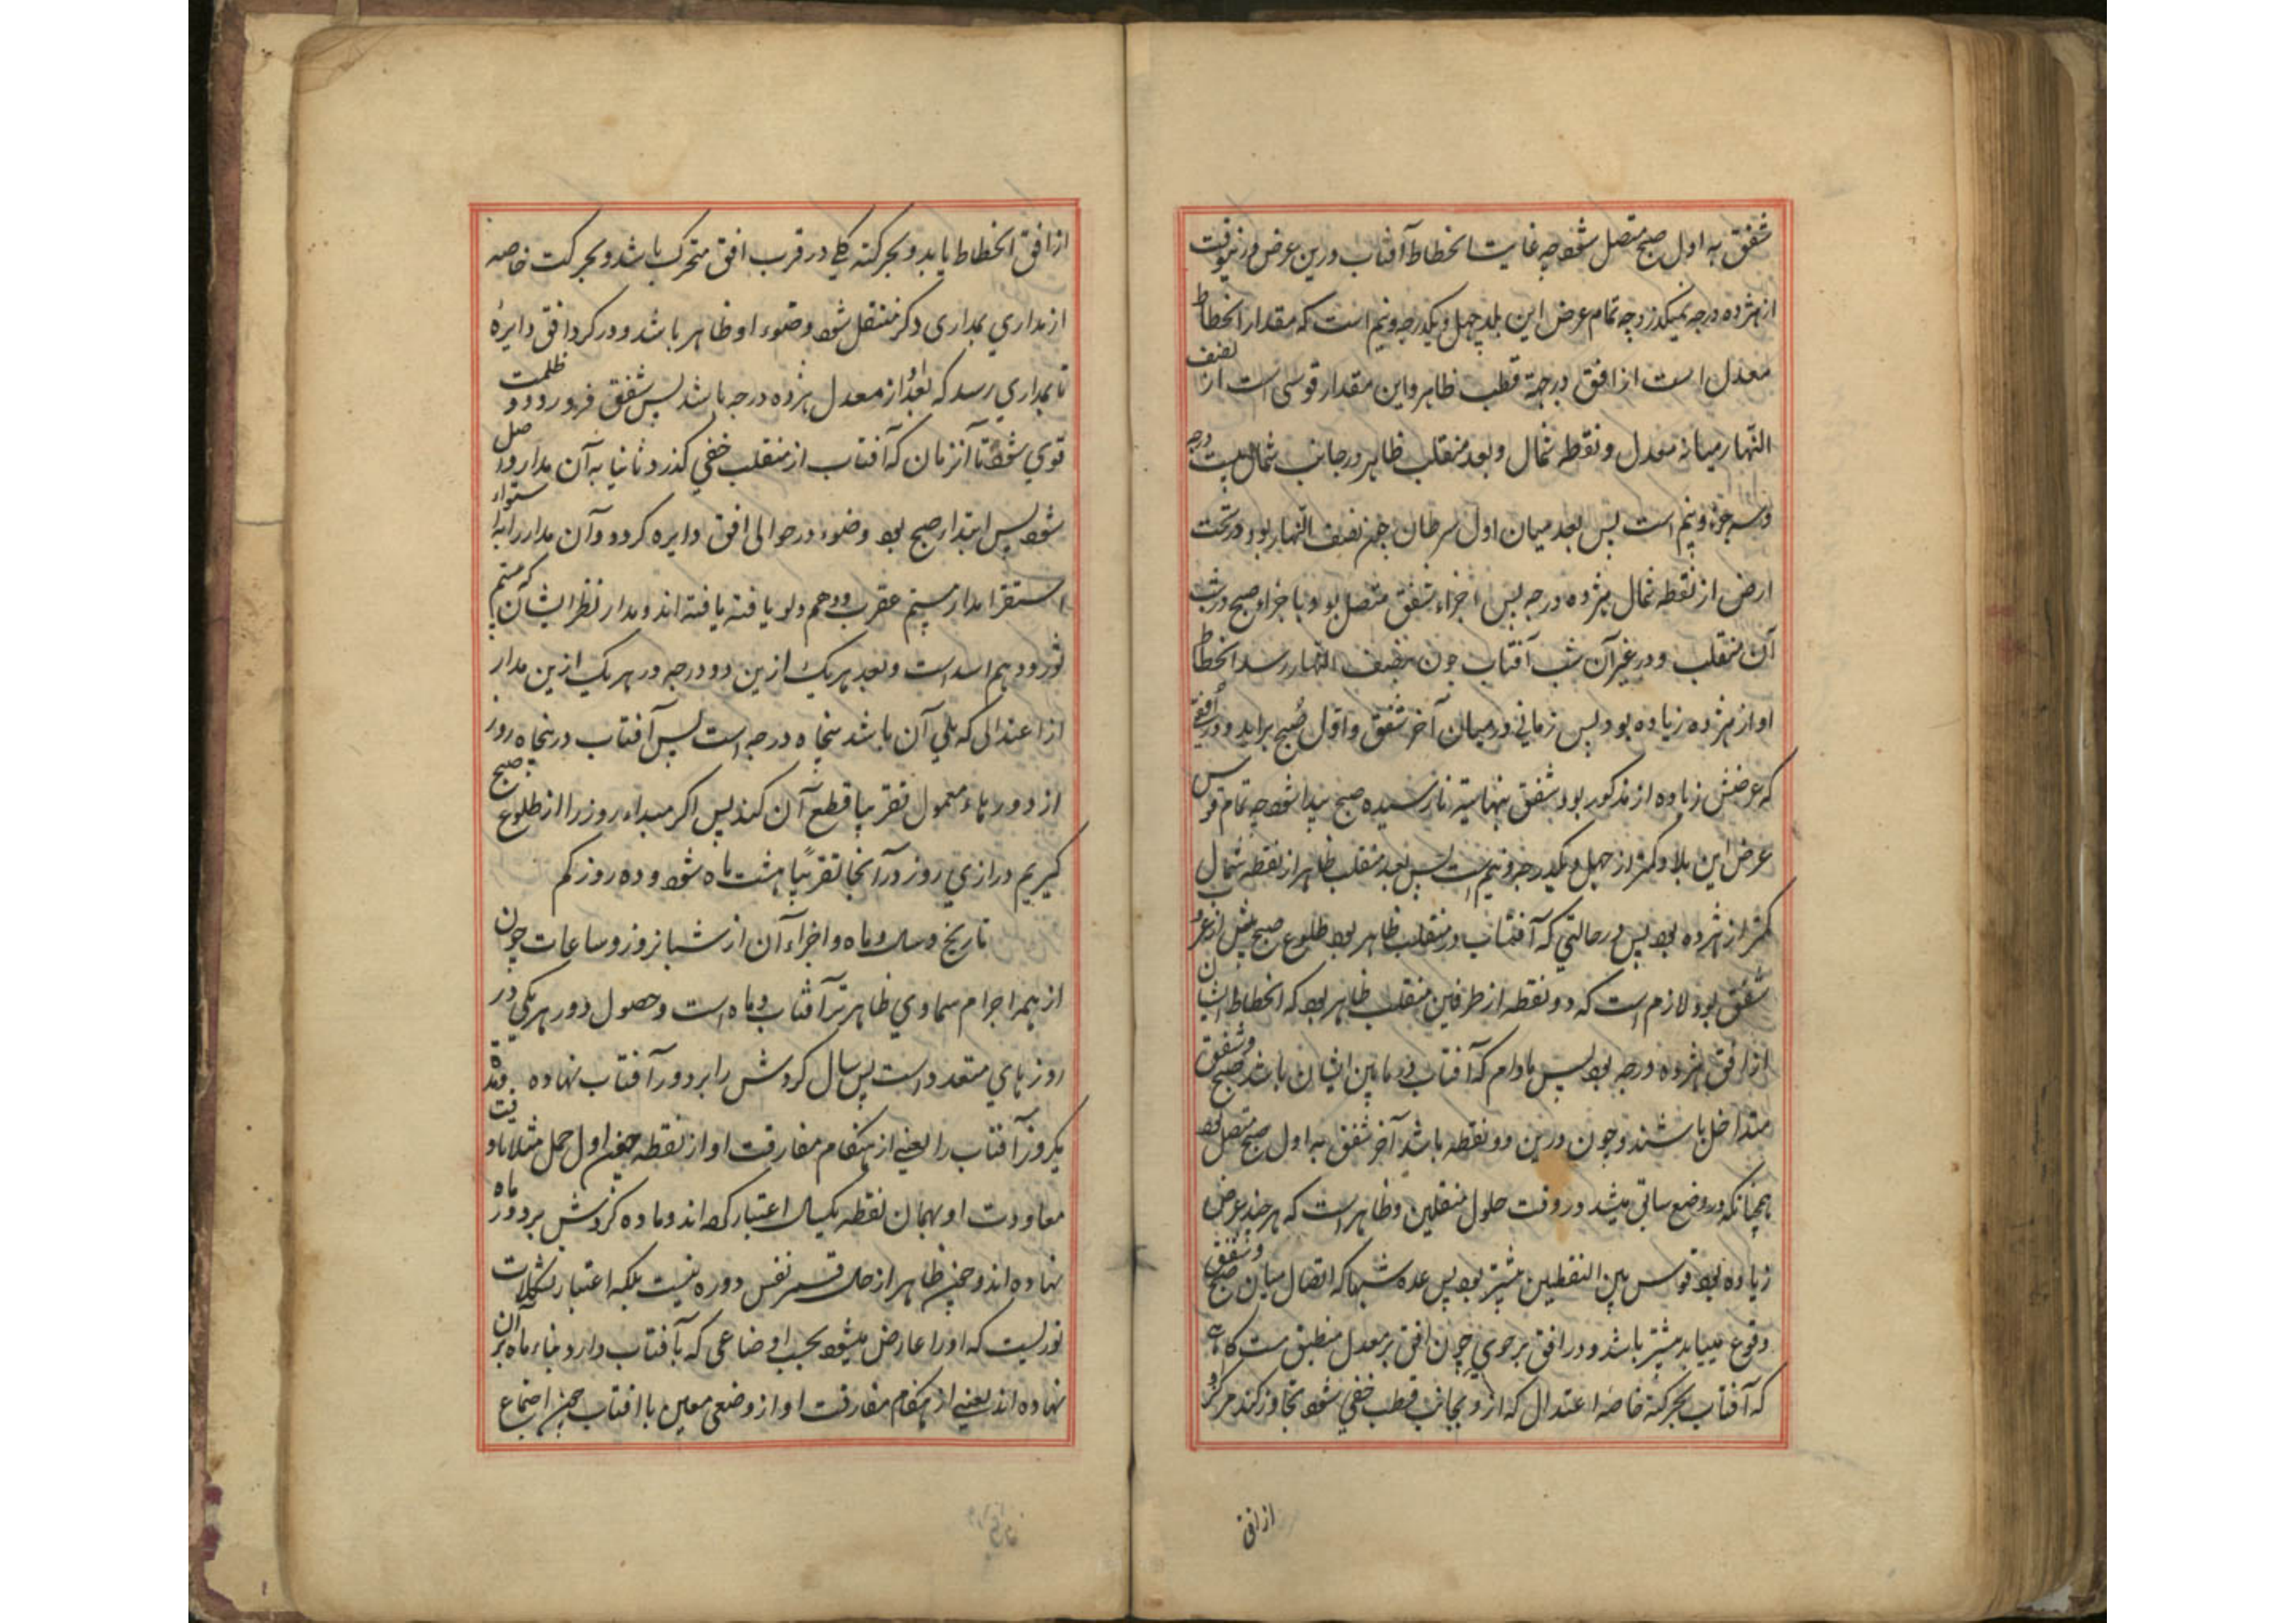 شفق به اول صبح متصل شود چه غایت انحطاط آفتاب درین عرض درین وقت
از هژده درجه نمیکذرد چه تمام عرض این بلد چهل و یکدرجه و نیم است که مقدار انحطاط
معدل است از افق در جهة قطب ظاهر و این مقدار قوسی است از نصف
النهار میانه معدل و نقطه شمال و بعد منقلب ظاهر در جانب شمال بیست درجه
و سه جزء و نیم است پس بعد میان اول سرطان چون بنصف النهار بود در تحت
ارض از نقطه شمال هژده درجه پس اجزاء شفق متصل بود با جزاء صبح در شب
آن منقلب و در غیر آن شب آفتاب چون بنصف النهار رسد انحطاط
او از هژده زیاده بود پس زمانی در میان آخر شفق و اول صبح براید و در افقی
که عرضش زیاده از مذکور بود شفق بنهایت نارسیده صبح پیدا شود چه تمام قوس
عرض این بلاد کمتر از چهل و یکدرجه و نیم است پس بعد منقلب ظاهر از نقطه شمال
کمتر از هژده بود پس در حالتی که آفتاب در منقلب ظاهر بود طلوع صبح پیش از غروب
شفق بود لازم است که دو نقطه از طرفین منقلب ظاهر بود که انحطاط ایشان
از افق هژده درجه بود پس مادام که آفتاب در مابین ایشان باشد صبح و شفق
متداخل باشند و چون درین دو نقطه باشد آخر شفق به اول صبح متصل بود
همچنانکه در وضع سابق میشد در وقت حلول منقلبین و ظاهر است که هر چند عرض
زیاده بود قوس بین النقطتین بیشتر بود پس عده شبها که اتصال میان صبح و شفق
وقوع مییابد بیشتر باشد و در افق رحوی چون افق بر معدل منطبق است کاهی
که آفتاب بحرکة خاصه اعتدال که ازو بجانب قطب خفی شود تجاوز کند مرکز او
از افق
از افق انحطاط یابد و بحرکته کلی در قرب افق متحرک باشد و بحرکت خاصه
از مداری بمداری دکر منتقل شود و ضوء او ظاهر باشد و در کرد افق دایره
تا بمداری رسد که بعد او از معدل هژده درجه باشد پس شفق فرو رود و ظلمت
قوی شود تا آنزمان که آفتاب از منقلب خفی کذرد و ثانیا به آن مدار واصل
شود پس ابتداء صبح بود و ضوء در حوالی افق دایره کردد و آن مدار را به استواء
استقرا مدار بیستم عقرب و دهم دلو یافته یافته اند و مدار نظر ایشان که بیستم
ثور و دهم اسد است و بعد هر یک ازین دو درجه در هر یک ازین مدار
از اعتدالی که یلی آن باشد پنجاه درجه است پس آفتاب در پنجاه روز
از دورهاء معمول تقریبا قطع آن کند پس اکر مبداء روز را از طلوع صبح
کیریم درازی روز در آنجا تقریبا هشت ماه شود و ده روز کم
تاریخ و سال و ماه و اجزاء آن از شبانروز و ساعات چون
از همه اجرام سماوی ظاهرتر آفتاب و ماه است و حصول دور هر یکی در
روزهای متعدد است پس سال کردش را بر دور آفتاب نهاده
یکروز آفتاب را یعنی از هنکام مفارقت او از نقطه چون اول حمل مثلا تا وقت
معاودت او بهمان نقطه یکسال اعتبار کرده اند و ماده کردش بر دور ماه
نهاده اند و چون ظاهر از حال قمر نفس دوره نیست بلکه اعتبار تشکلات
نوریست که او را عارض میشود بحسب اوضاعی که با آفتاب دارد بناء ماه بر آن
نهاده اند یعنی از هنکام مفارقت او از وضعی معین با افتاب چون اجتماع